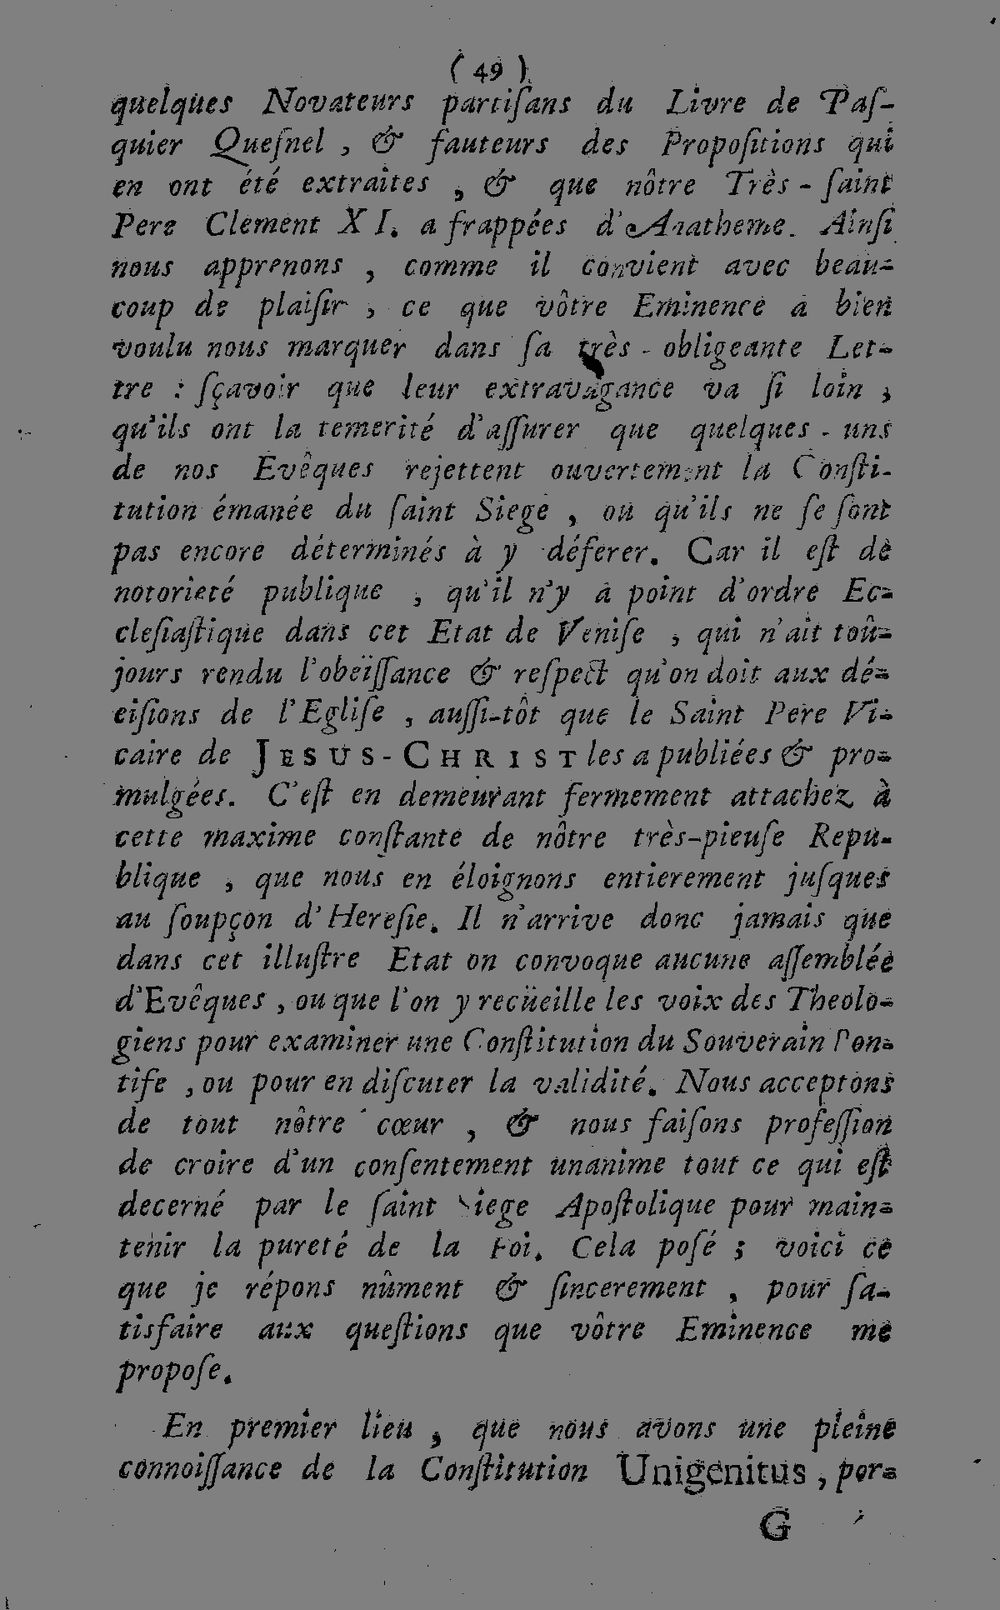 ( 49 )
quelques Novateurs partiſans du Livre de Paſ-
quier Queſnel , & fauteurs des Propoſitions qui
en ont été extraites , & que nôtre Très-ſaint
Pere Clement XI. a frappées d'Anatheme. Ainſi
nous apprenons , comme il convient avec beau-
coup de plaiſir , ce que vôtre Eminence a bien
voulu nous marquer dans ſa très-obligeante Let-
tre : ſçavoir que leur extravagance va ſi loin ,
qu'ils ont la temerité d'aſſurer que quelques-uns
de nos Evêques rejettent ouvertement la Conſti-
tution émanée du ſaint Siege , ou qu'ils ne ſe ſont
pas encore déterminés à y déferer. Car il eſt de
notorieté publique , qu'il n'y a point d'ordre Ec-
cleſiaſtique dans cet Etat de Veniſe , qui n'ait toû-
jours rendu l'obeïſſance & reſpect qu'on doit aux dé-
ciſions de l'Egliſe , auſſi-tôt que le Saint Pere Vi-
caire de JESUS-CHRIST les a publiées & pro-
mulgées. C'eſt en demeurant fermement attachez à
cette maxime conſtante de nôtre très-pieuſe Repu-
blique , que nous en éloignons entierement juſques
au ſoupçon d'Hereſie. Il n'arrive donc jamais que
dans cet illuſtre Etat on convoque aucune aſſemblée
d'Evêques , ou que l'on y recüeille les voix des Theolo-
giens pour examiner une Conſtitution du Souverain Pon-
tife , ou pour en diſcuter la validité. Nous acceptons
de tout nôtre cœur , & nous faiſons profeſſion
de croire d'un conſentement unanime tout ce qui eſt
decerné par le ſaint Siege Apoſtolique pour main-
tenir la pureté de la Foi. Cela poſé ; voici ce
que je répons nûment & ſincerement , pour ſa-
tisfaire aux queſtions que vôtre Eminence me
propoſe.
En premier lieu , que nous avons une pleine
connoiſſance de la Conſtitution Unigenitus , por-
G